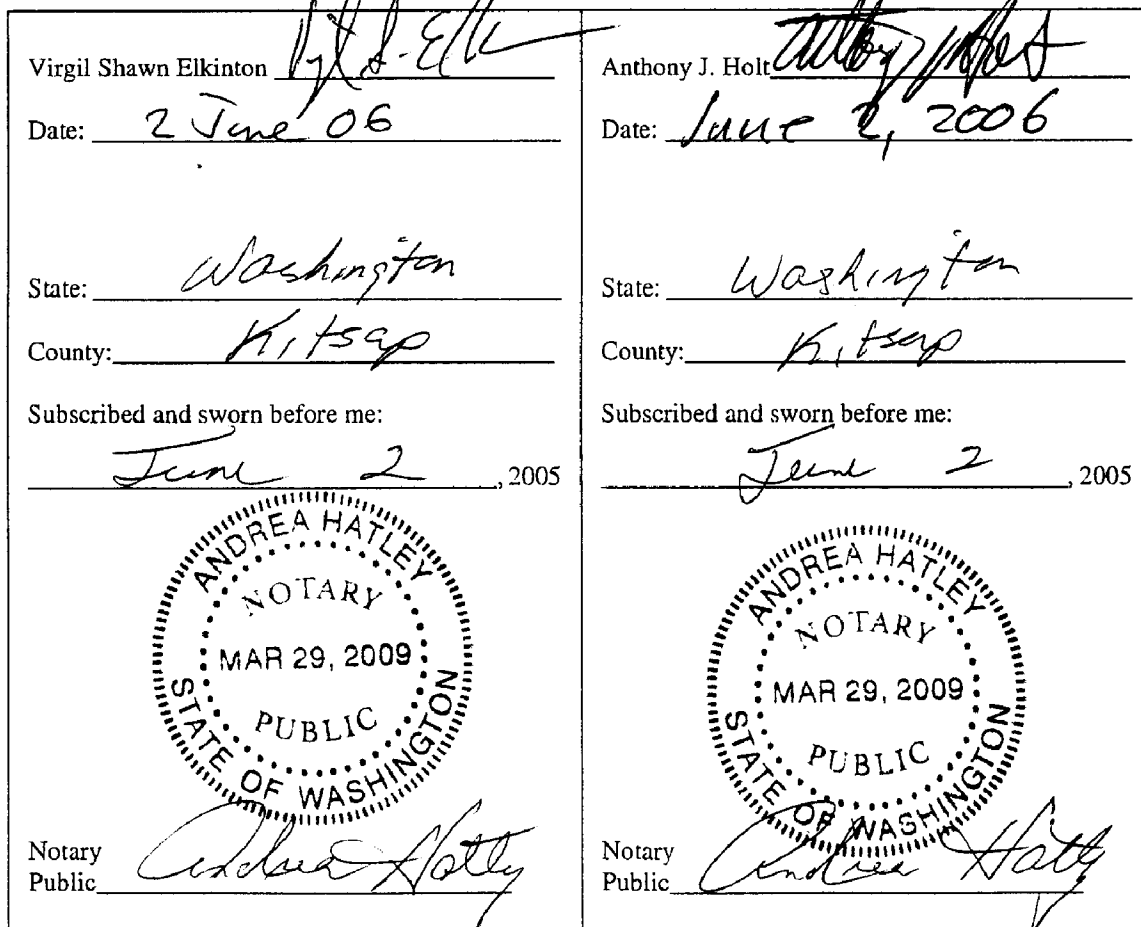 Virgil Shawn Elkinton
Date: 2 June 06
State: Washington
County: Kitsap
Subscribed and sworn before me:
June 2, 2005
ANDREA HATLEY
NOTARY
MAR 29, 2009
PUBLIC
STATE OF WASHINGTON
Notary
Public Andrea Hatley
Anthony J. Holt Anthony J Holt
Date: June 2, 2006
State: Washington
County: Kitsap
Subscribed and sworn before me:
June 2, 2005
ANDREA HATLEY
NOTARY
MAR 29, 2009
PUBLIC
STATE OF WASHINGTON
Notary
Public Andrea Hatley